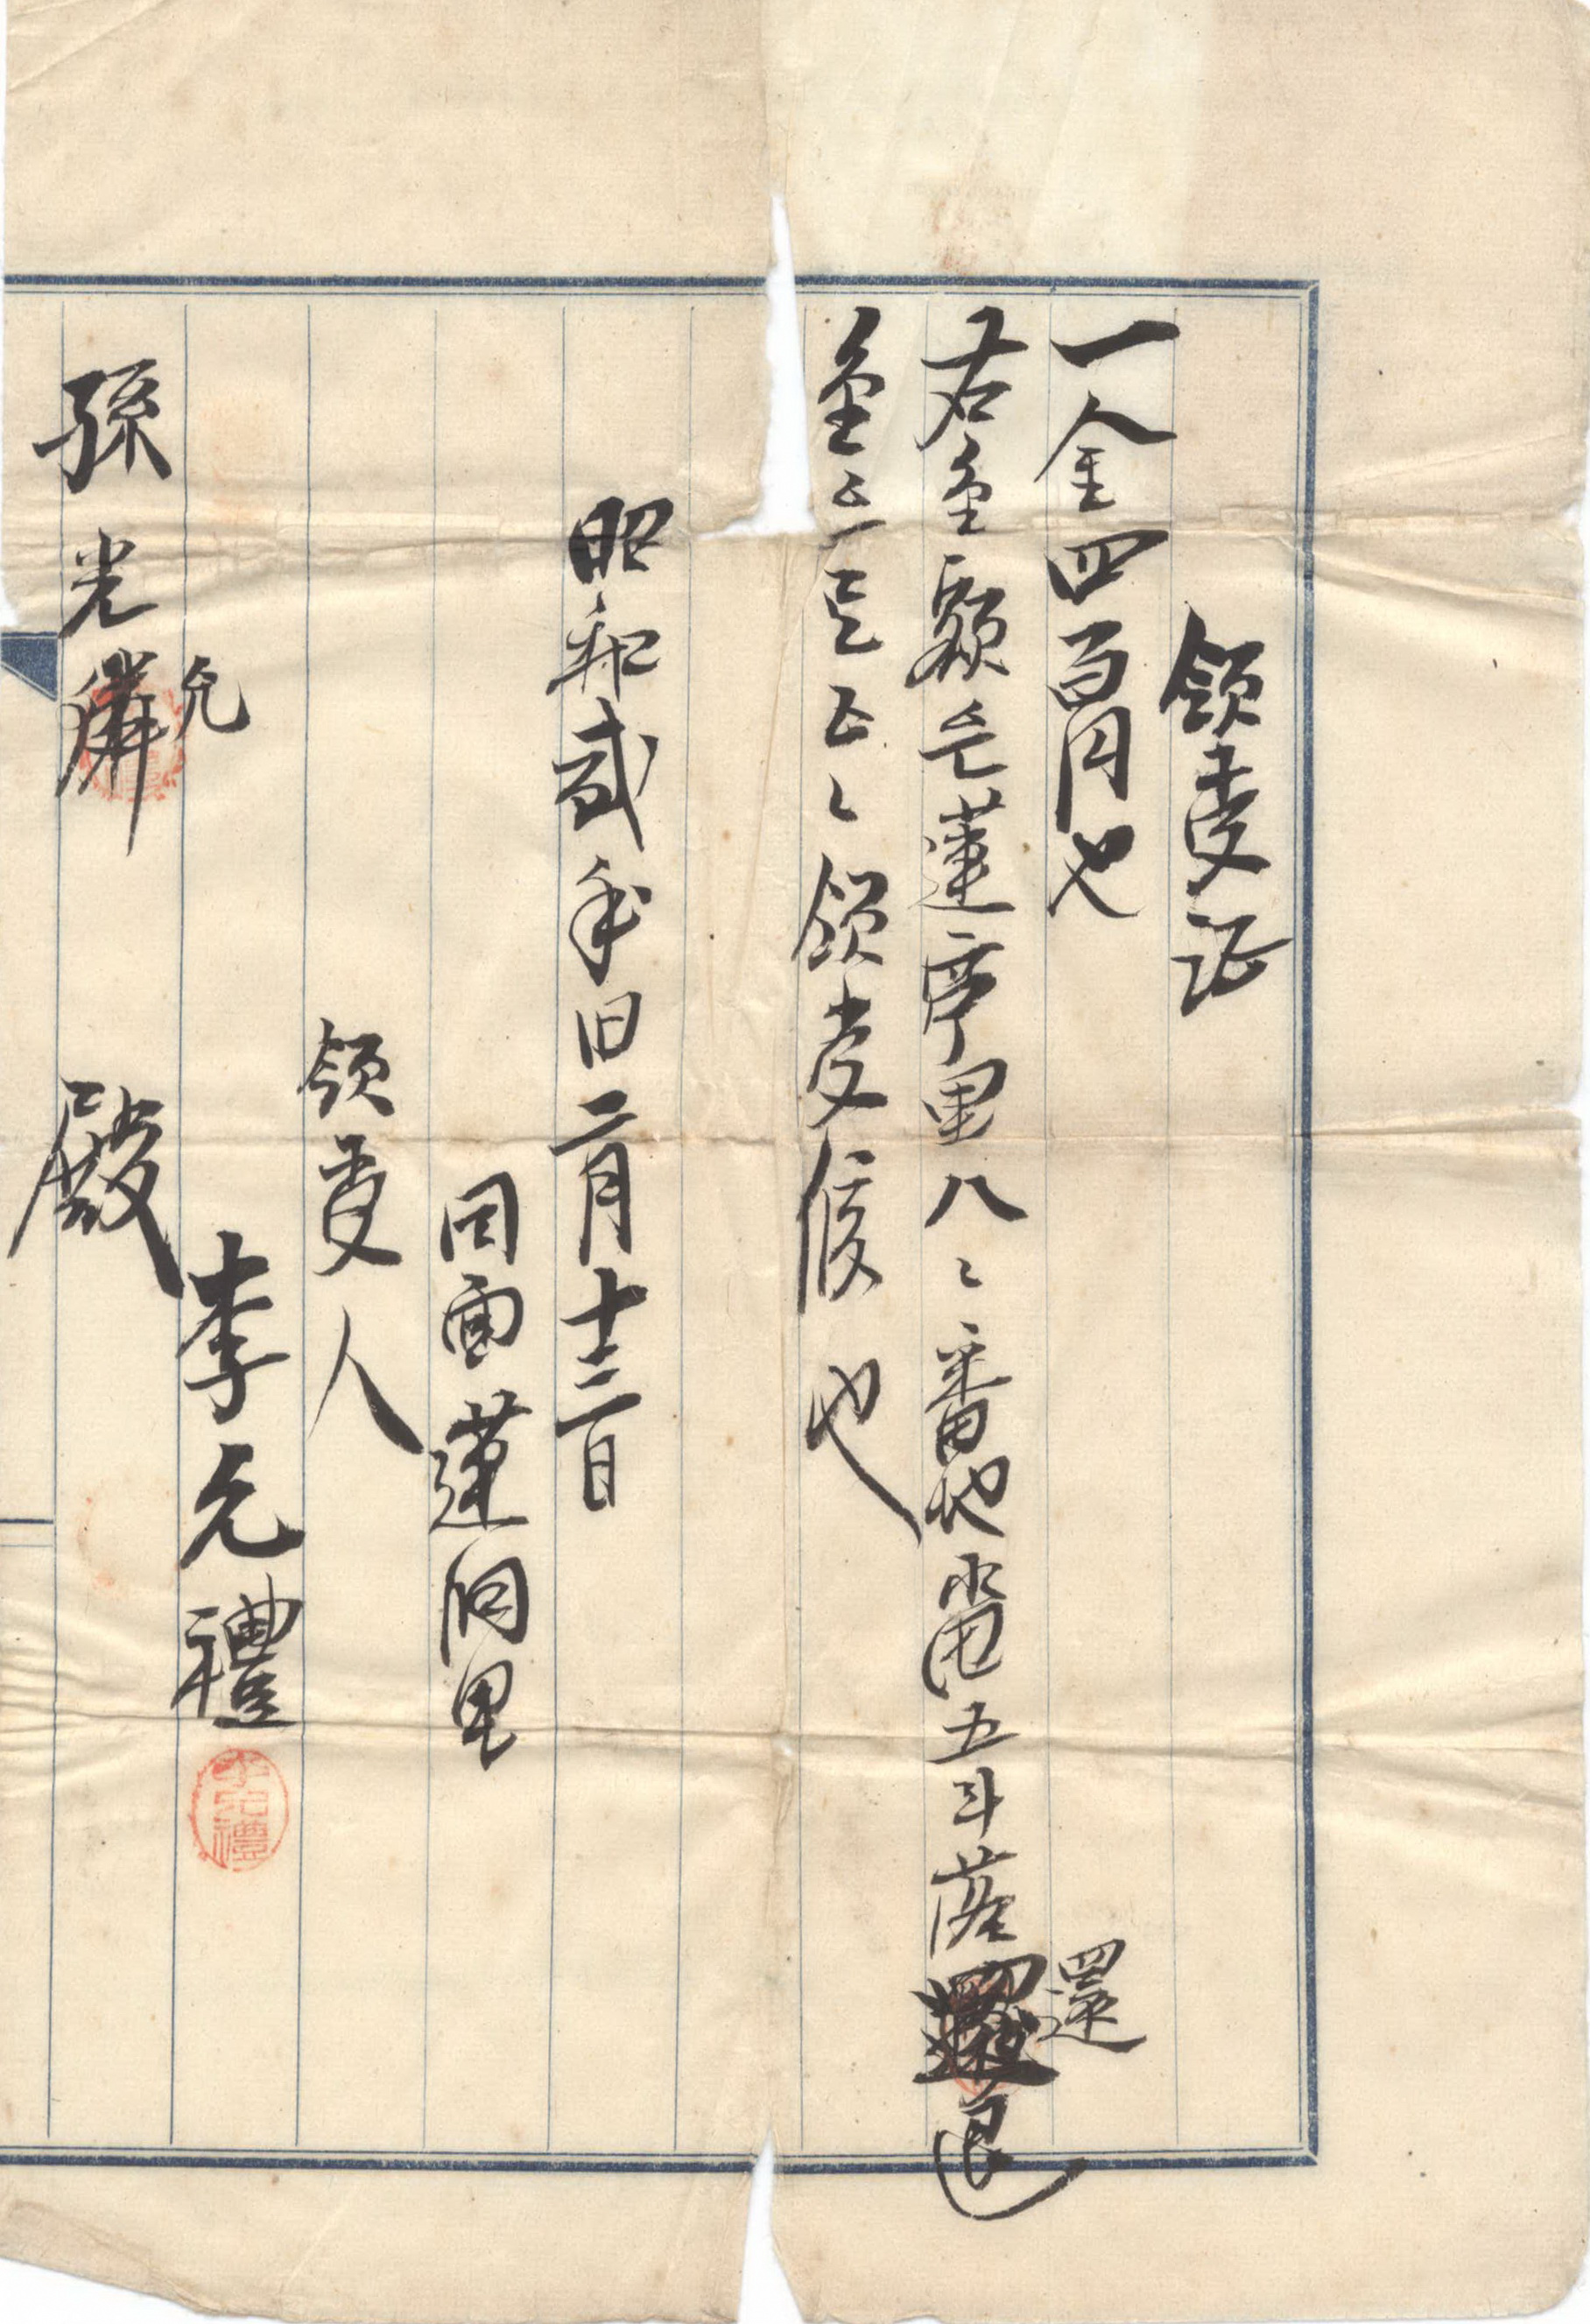 領受证
一金四百円也
還
右金額은蓮亭里八〻番地畓五斗落退
金으로正〻領受候也
昭和貳年旧二月十三日
同面蓮洞里
領受人
李允禮
李允禮
允
孫光 殿